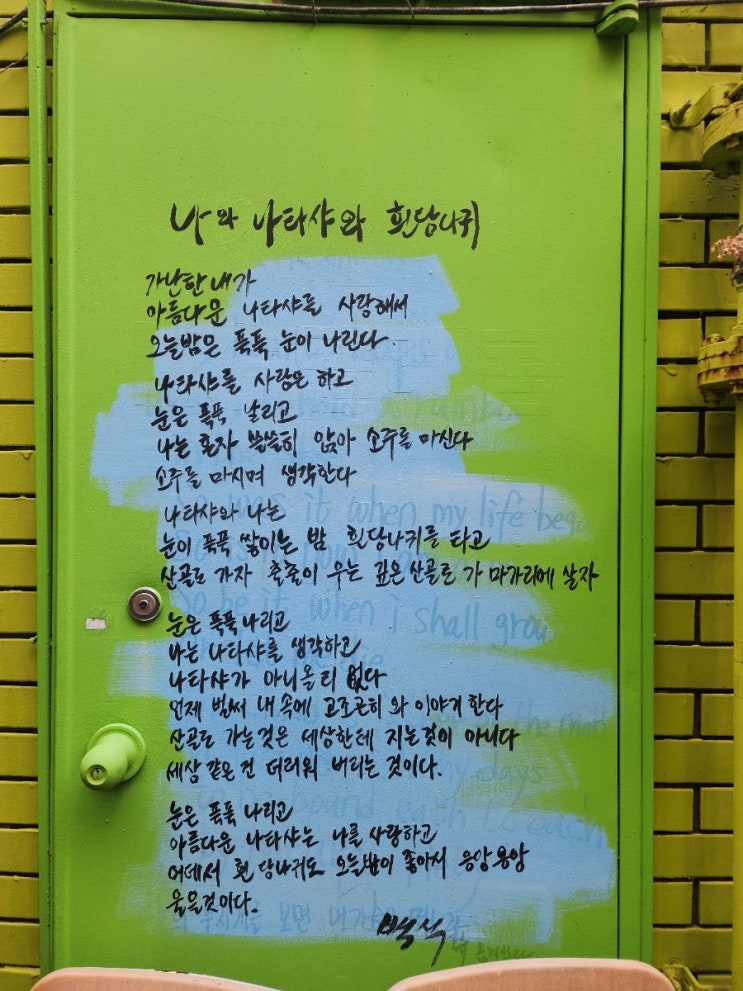 나와 나타샤와 흰당나귀
가난한 내가
아름다운 나타샤를 사랑해서
오늘밤은 푹푹 눈이 나린다.
나타샤를 사랑은 하고
눈은 푹푹 날리고
나는 혼자 쓸쓸히 앉아 소주를 마신다
소주를 마시며 생각한다
나타샤와 나는
눈이 푹푹 쌓이는 밤 흰당나귀를 타고
산골로 가자 출출이 우는 깊은 산골로 가 마가리에 살자
눈은 푹푹 나리고
나는 나타샤를 생각하고
나타샤가 아니올 리 없다
언제 벌써 내 속에 고조곤히 와 이야기 한다
산골로 가는것은 세상한테 지는것이 아니다
세상 같은 건 더러워 버리는 것이다.
눈은 푹푹 나리고
아름다운 나타샤는 나를 사랑하고
어데서 흰 당나귀도 오늘밤이 좋아서 응앙응앙
울을것이다.
백석
was it when my life beg
So be it when i shall grow
my days
bound each to each
보면 내가